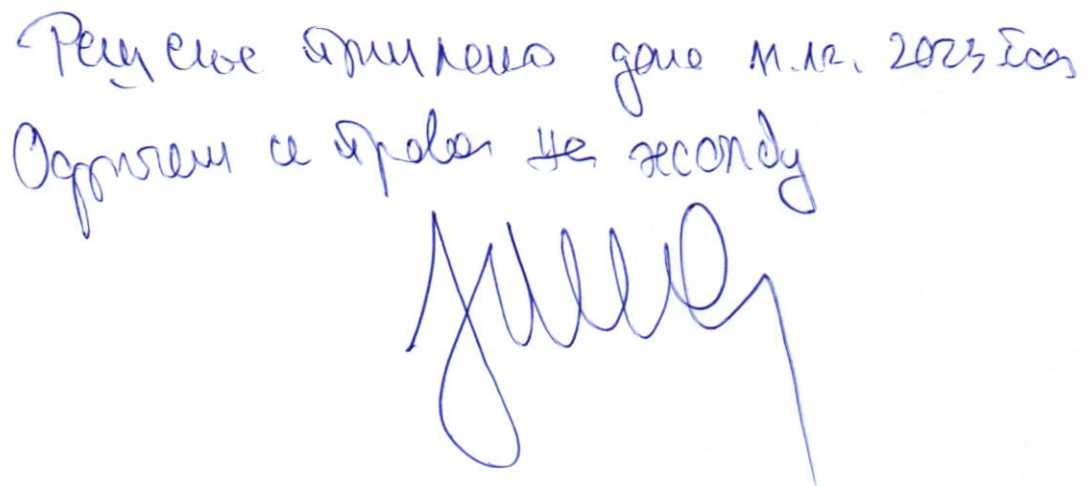 Решење примљено дана 11.12. 2023 год
Одричем се права на жалбу